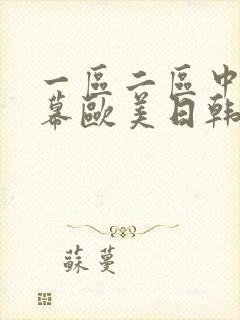 一區二區中
幕歐美日韩
蘇蔓